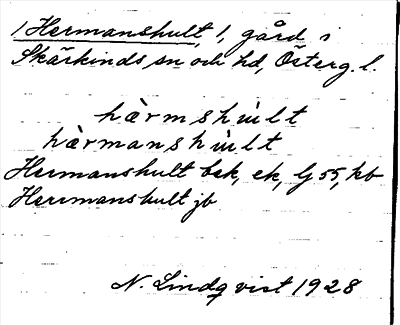 1 Hermanshult, 1, gård i
Skärkinds sn och hd, Österg. l.
hàrmshùlt
hàrmanshùlt
Hermanshult bsk, ek, G 55, kb
Hermanshult jb
N. Lindqvist 1928